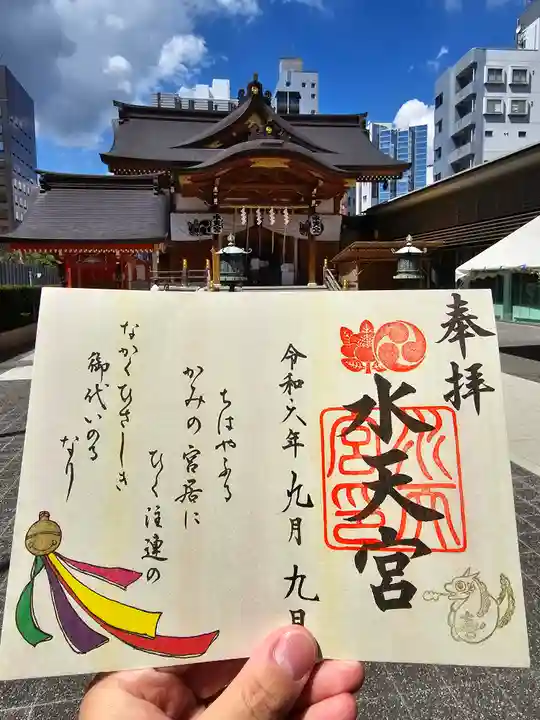 奉拝
水天宮
令和六年九月九日
ちはやふる
かみの宮居に
ひく注連の
なかくひさしき
御代いのる
なり